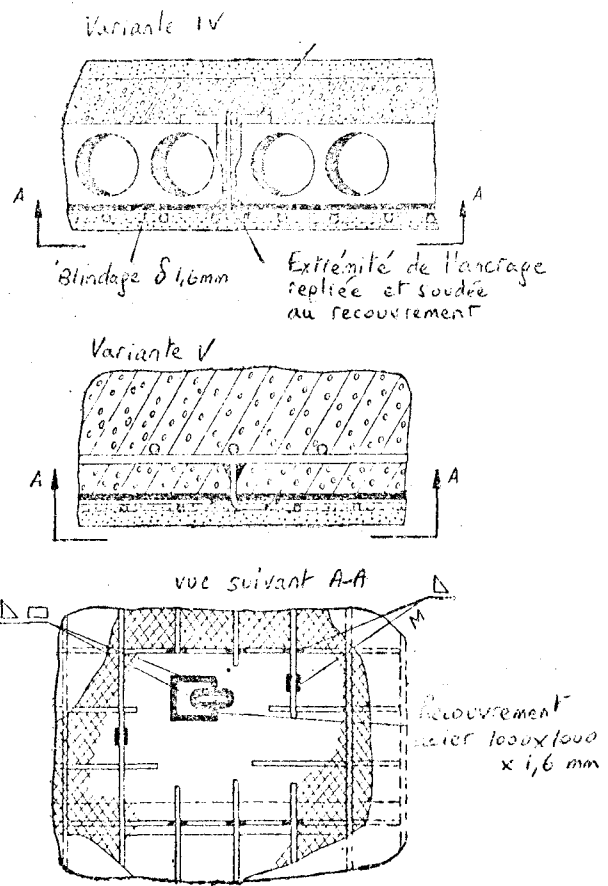 Variante IV
A
A
Blindage δ 1,6mm
Extrémité de l'ancrage
repliée et soudée
au recouvrement
Variante V
A
A
vue suivant A-A
M
Recouvrement
acier 1000x1000
x 1,6 mm